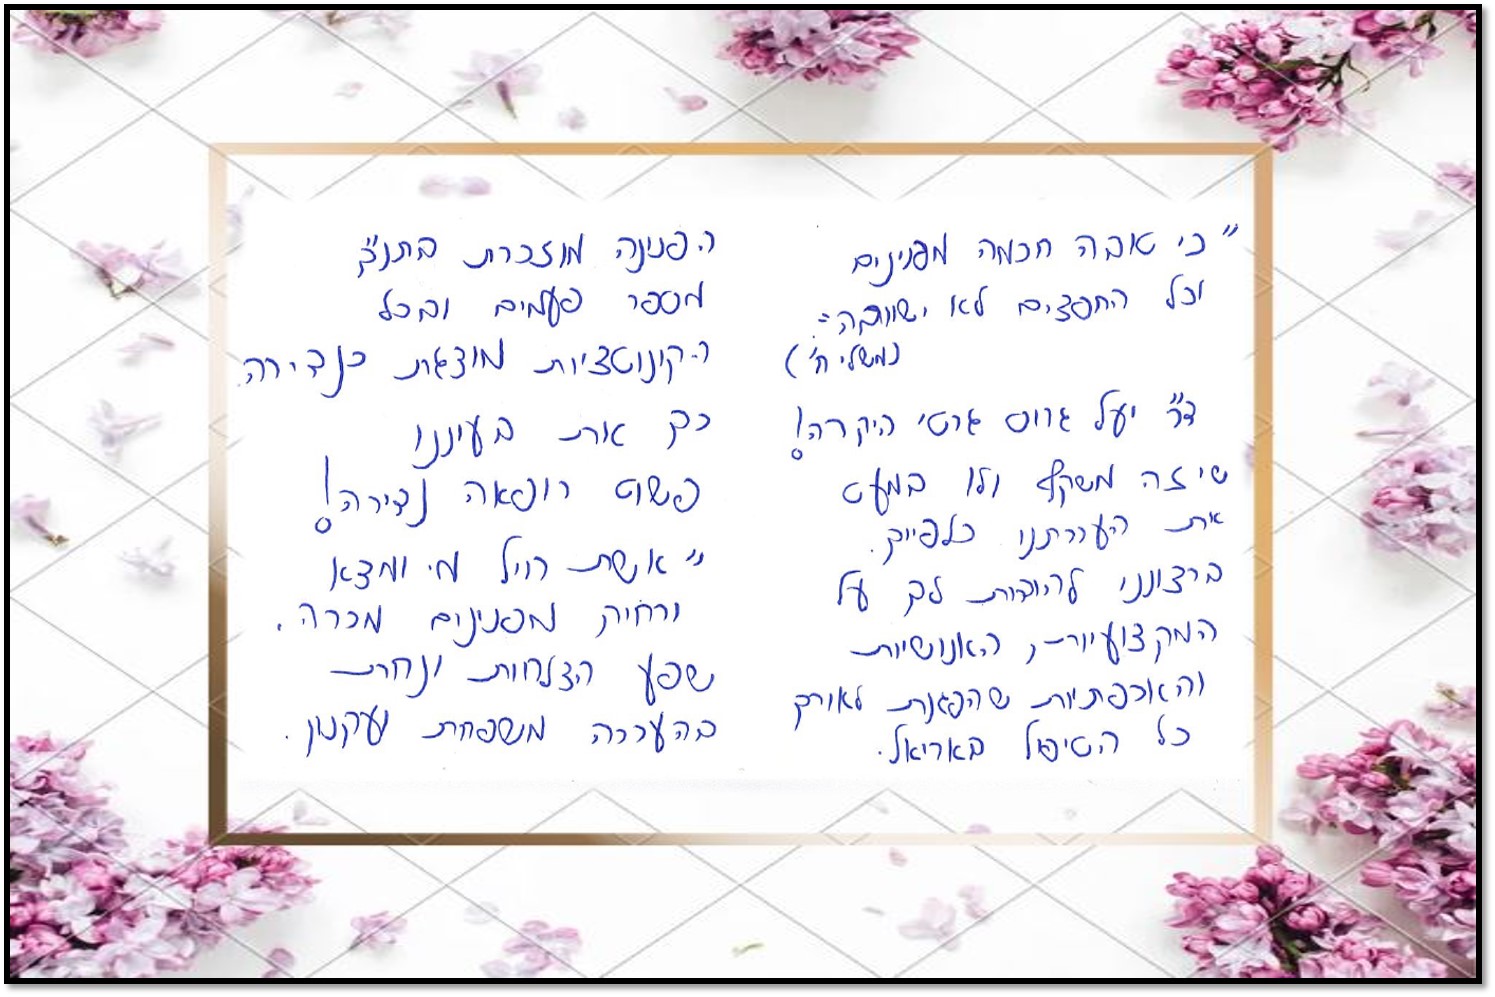 "כי טובה חכמה מפנינים
וכל החפצים לא ישוו בה"
(משלי ח')
ד"ר יעל גרוס גרטי היקרה!
שי זה משקף ולו במעט
את הערכתנו כלפייך.
ברצונני להודות לך על
המקצועיות, האנושיות
והאכפתיות שהפגנת לאורך
כל הטיפול באריאל.
הפנינה מוזכרת בתנ"ך
מספר פעמים ובכל
הקונוטציות מוצגת כנדירה.
כך את בעיננו
פשוט רופאה נדירה!
"אשת חיל מי ימצא
ורחוק מפנינים מכרה.
שפע הצלחות ונחת
בהערכה משפחת